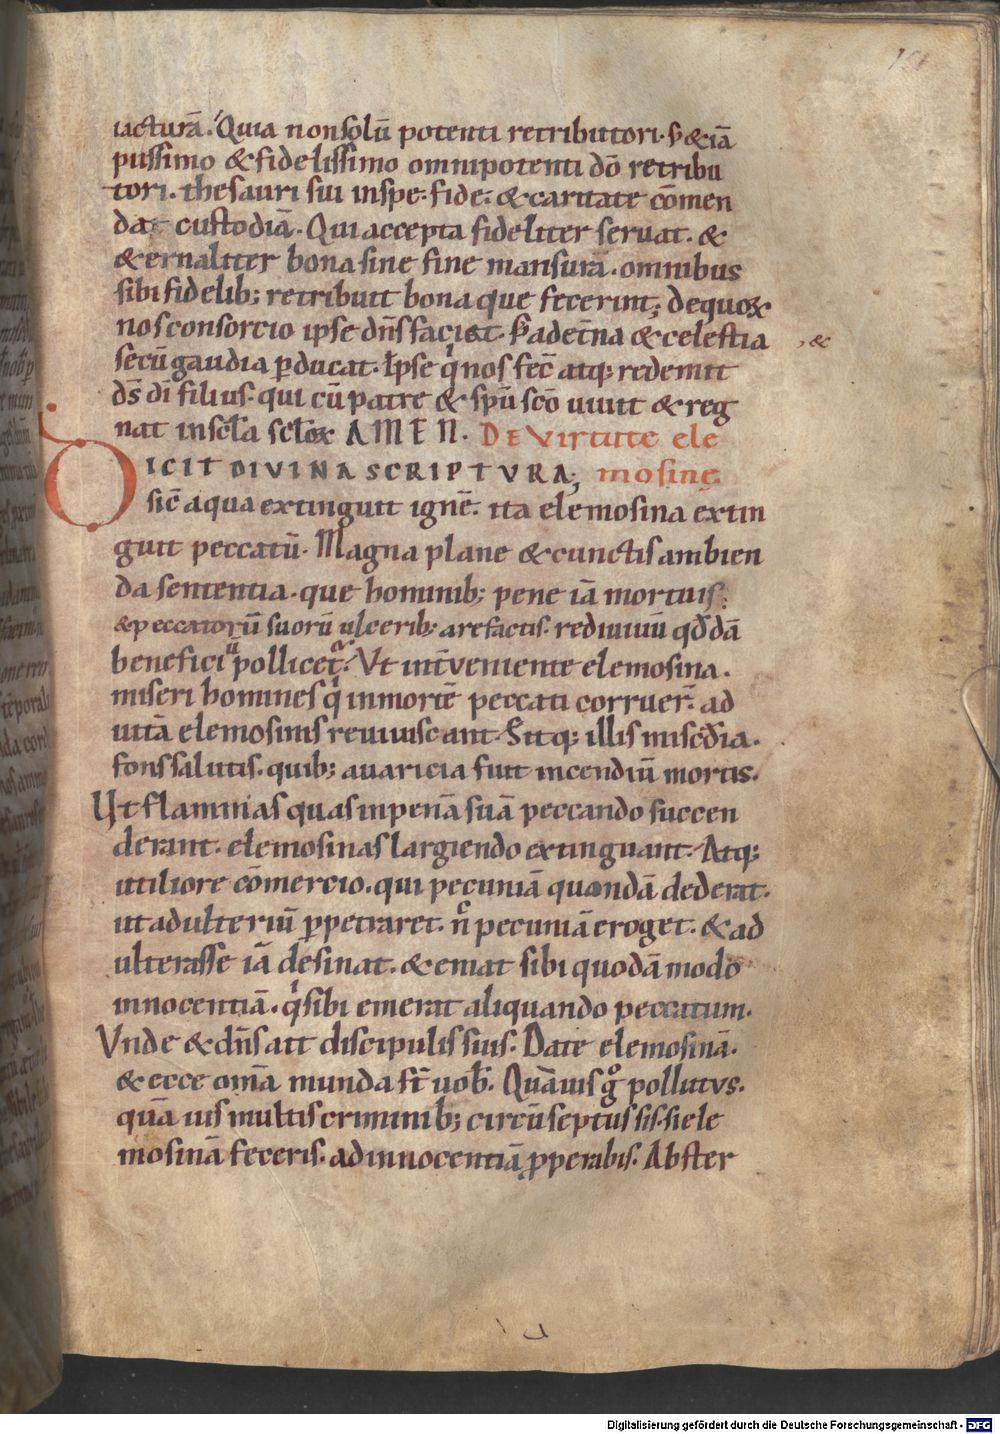 iacturā. Quia non solū potenti retributori. s; & iā
piissimo & fidelissimo omnipotenti dō retribu
tori. thesauri sui in spe. fide. & caritate cōmen
dat custodiā. Qui accepta fideliter seruat. &
&ernaliter bona sine fine mansurā. omnibus
sibi fidelib; retribuit bona que fecerint; de quoꝝ
nos consorcio ipse dn̄s faciat. & ad et̄na & celestia , &
secū gaudia ꝑducat. Ipse qͥ nos fec̄ atq; redemit
ds̄ dī filius. qui cū patre & sp̄u scō uiuit & reg
nat in scl̄a scl̄oꝝ AMEN. DE Virtute ele
DICIT DIVINA SCRIPTVRA; mosinę.
sic̄ aqua extinguit ignē. ita elemosina extin
guit peccatū. Magna plane & cunctis ambien
da sententia. que hominib; pene iā mortuis.
& peccatorū suorū ulcerib; arefactis. rediuiuū qd̄dā
beneficiū pollicet᷑. Vt int̄ueniente elemosina.
miseri homines qͥ in mortē peccati corruer̄. ad
uitā elemosinis reuiuiscant. Sitq; illis misc̄dia.
fons salutis. quib; auaricia fuit incendiū mortis.
Ut flammas quas in penā suā peccando succen
derant. elemosinas largiendo extinguant. Atq;
utiliore cōmercio. qui pecuniā quondā dederat.
ut adulteriū ꝑpetraret. nͨ pecuniā eroget. & ad
ulterasse iā desinat. & emat sibi quodā modo
innocentiā. qͥ sibi emerat aliquando peccatum.
Vnde & dn̄s ait discipulis suis. Date elemosinā.
& ecce om̄a munda st̄ uob̄. Quāuis gͦ pollutvs.
quā uis multis criminib; circūseptus sis. si ele
mosinā feceris. ad innocentiā ꝓperabis. Abster
Digitalisierung gefördert durch die Deutsche Forschungsgemeinschaft - DFG